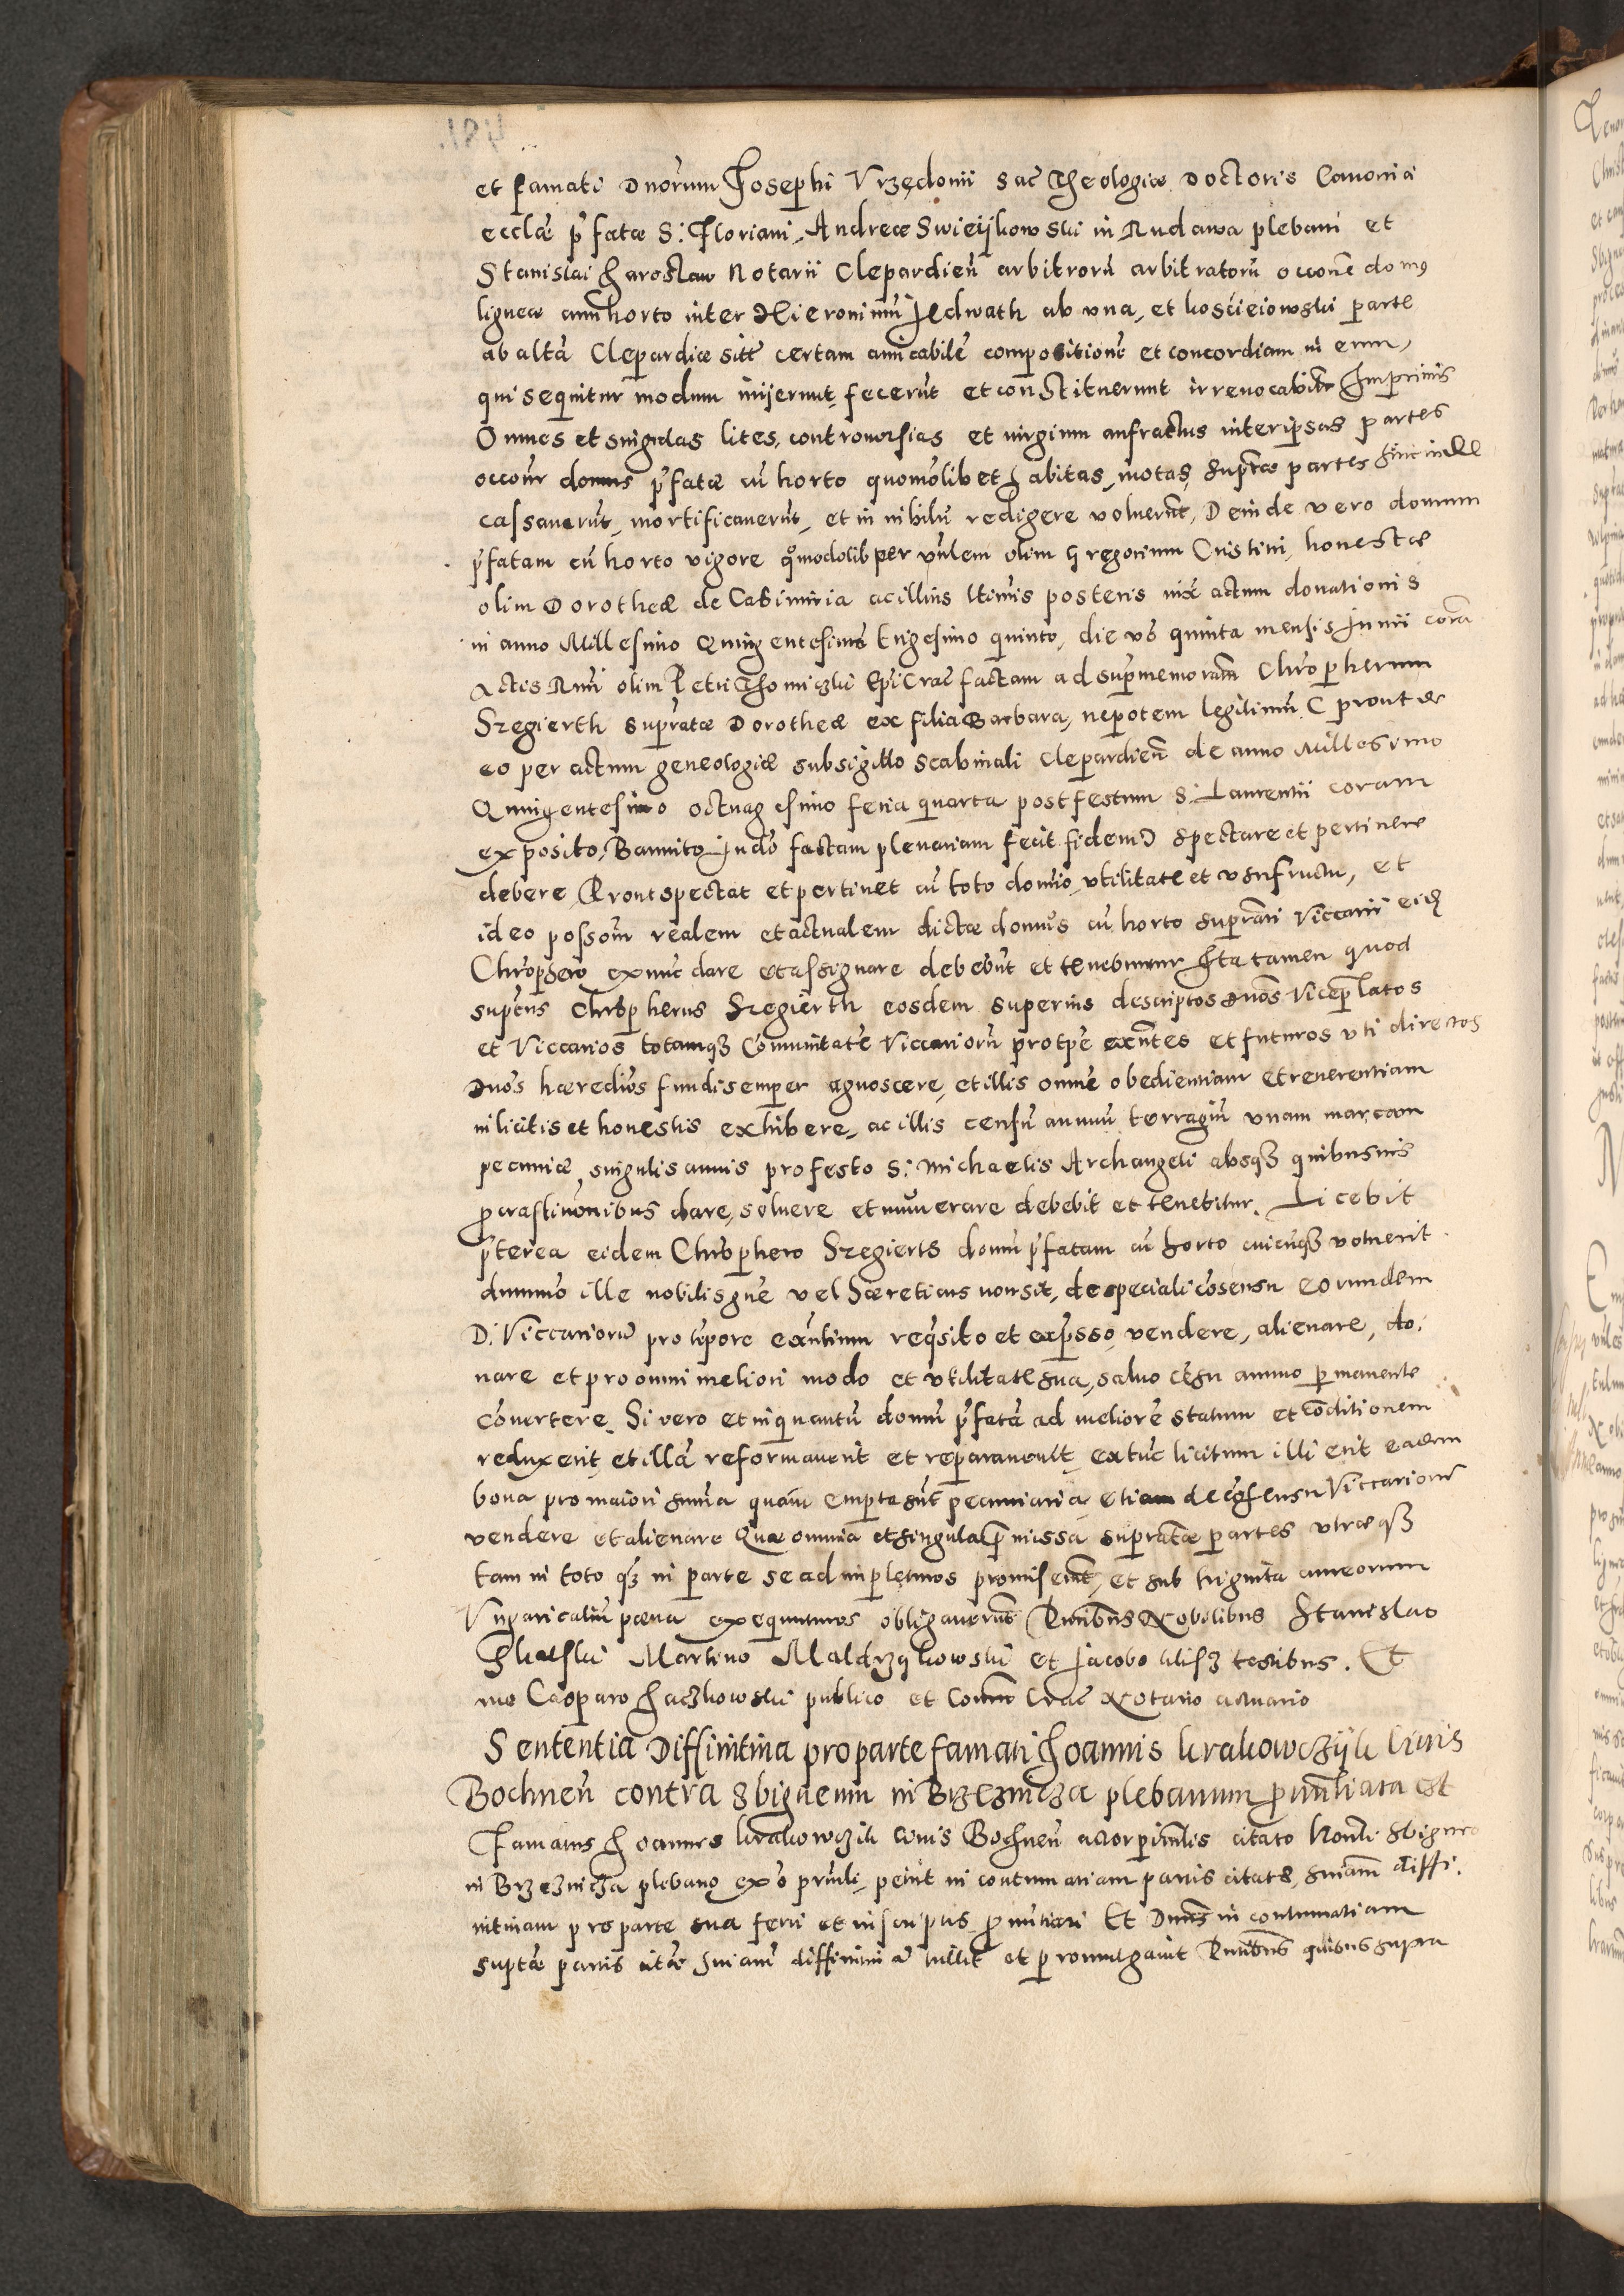 et famati Dnorum Josephi Vrzędonii Sac Theologiæ Doctoris Canonici
eccłæ pfatæ S: Floriani, Andreæ Swieijkowski in Rudawa plebani et
Stanislai Jaroslaw Notarii Clepardień arbitrorū arbitratorū occone domꝰ
ligneæ cum horto inter Hieronimū Jedwath ab vna, et kościeiowski parte
ab altā Clepardiæ sitæ certam amicabilē compositionē et concordiam in eum,
qui sequitur modum inijerunt, fecerūt et constituerunt irreuocabilr Imprimis
Omnes et singulas lites, controuersias et iurgium anfractus inter ipsas partes
occone domus pfatæ cū horto quomolibet habitas, motas, suprae partes hincinde
cassauerūt, mortificauerūt, et in nihilū redigere voluerūt, Deinde vero domum
pfatam cū horto vigore qmodolib per vnlem olim Gregorium Cristini, honestæ
olim Dorotheæ de Casimiria ac illius ltimis posteris iuxᵉ actum donationis
in anno Millesimo Quingentesimo trigesimo quinto, die vō quinta mensis Junii corā
Actis Rmi olim Petri Thomiczki Epi Crac factam ad supmemoram Chropherum
Szegierth supratæ Dorotheæ ex filia Barbara, nepotem legitimū C prout de
eo per actum geneologiæ sub sigillo scabinali Clepardień de anno Millesimo
Quingentesimo octuagesimo feria quarta post festum S: Laurentii coram
exposito, Bannito Judō factam plenariam fecit fidem Ɔ spectare et pertinere
debere, Prout spectat et pertinet cū toto domio, vtilitate et vsufructu, et
ideo possom realem et actualem dictæ domus cū horto suprari Viccarii eidē
Chrophero ex nunc dare et assignare debebūt et tenebuntur Ita tamen quod
supcus Chropherus Szegierth eosdem superius descriptos Dnos Viceplatos
et Viccarios totamqȝ Cōmunitatē Viccariorū pro tpe exntes et futuros vti directos
Dnos hæredios fundi semper agnoscere, et illis omnē obedientiam et reuerentiam
in licitis et honestis exhibere, ac illis censū annuū terragiū vnam marcam
pecuniæ, singulis annis pro festo S: Michaelis Archangeli absqȝ quibusuis
pcrastinonibus dare, soluere et numerare debebit et tenebitur. Licebit
pterea eidem Chrophero Szegierth domū pfatam cū horto cuicūqȝ voluerit
dummō ille nobilis gne vel hæreticus non sit, de speciali cōsensu eorundem
D: Viccariorū pro tpore exntium reqsito et expsso, vendere, alienare, do:
nare et pro omni meliori modo et vtilitate sua, saluo cēsu annuo pmanente
cōuertere. Si vero et inquantū domū pfatā ad meliorē statum et cōditionem
reduxerit, et illā reformauerit et reparauerit, ex tūc licitum illi erit eadem
bona pro maiori summa quam empta sūt pecuniaria, etiam de cōsensu Viccariorū
vendere et alienare Quæ omnia et singula pmissa supratæ partes vtræqȝ
tam in toto qȝ in parte se adimpleturos promiserūt, et sub triginta aureorum
Vngaricaliū pœna exequuturos obligauerūt Pntibus Nobilibus Stanislao
Martino Maldrzykowski et Jacobo testibus. Et
me Casparo Jaczkowski publico et Coñm Crac Notario actuario
Sententia Diffinitiua pro parte famati Joannis krakowczijk Ciuis
Bochneñ contra Sbigneum in Brzeznicza plebanum pnuntiata est
Famatus Joannes krakowczik Ciuis Bochneñ actor pncialis citato Honli Sbigneo
in Brzeznicza plebano ex ō pruli, petiit in contumatiam partis citatæ, sniam diffi:
nitiuam pro parte sua ferri et in scriptis pnuntiari Et Dnus in contumatiam
suptæ partis citæ sniam diffinitiuā tulit et promulgauit Pntibus quibus supra